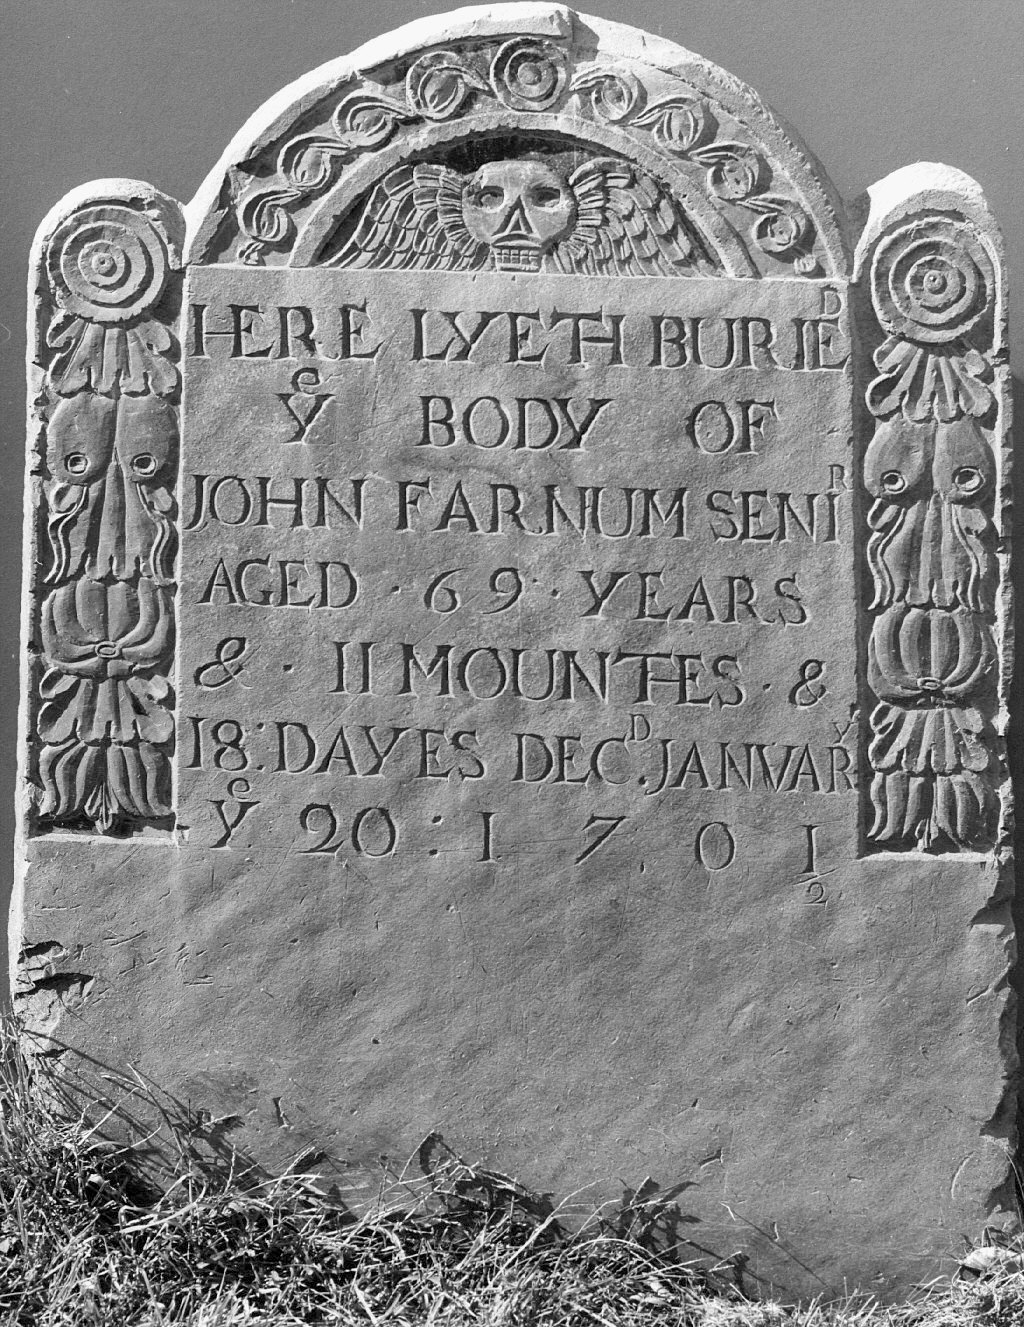 HERE LYETH BURIED
Yᵉ BODY OF
JOHN FARNUM SENIᴿ
AGED · 69 · YEARS
& · 11 MOUNTES · &
18 : DAYES DECᴰ. JANVARʸ
Yᵉ 20 : 1 7 0 1/2